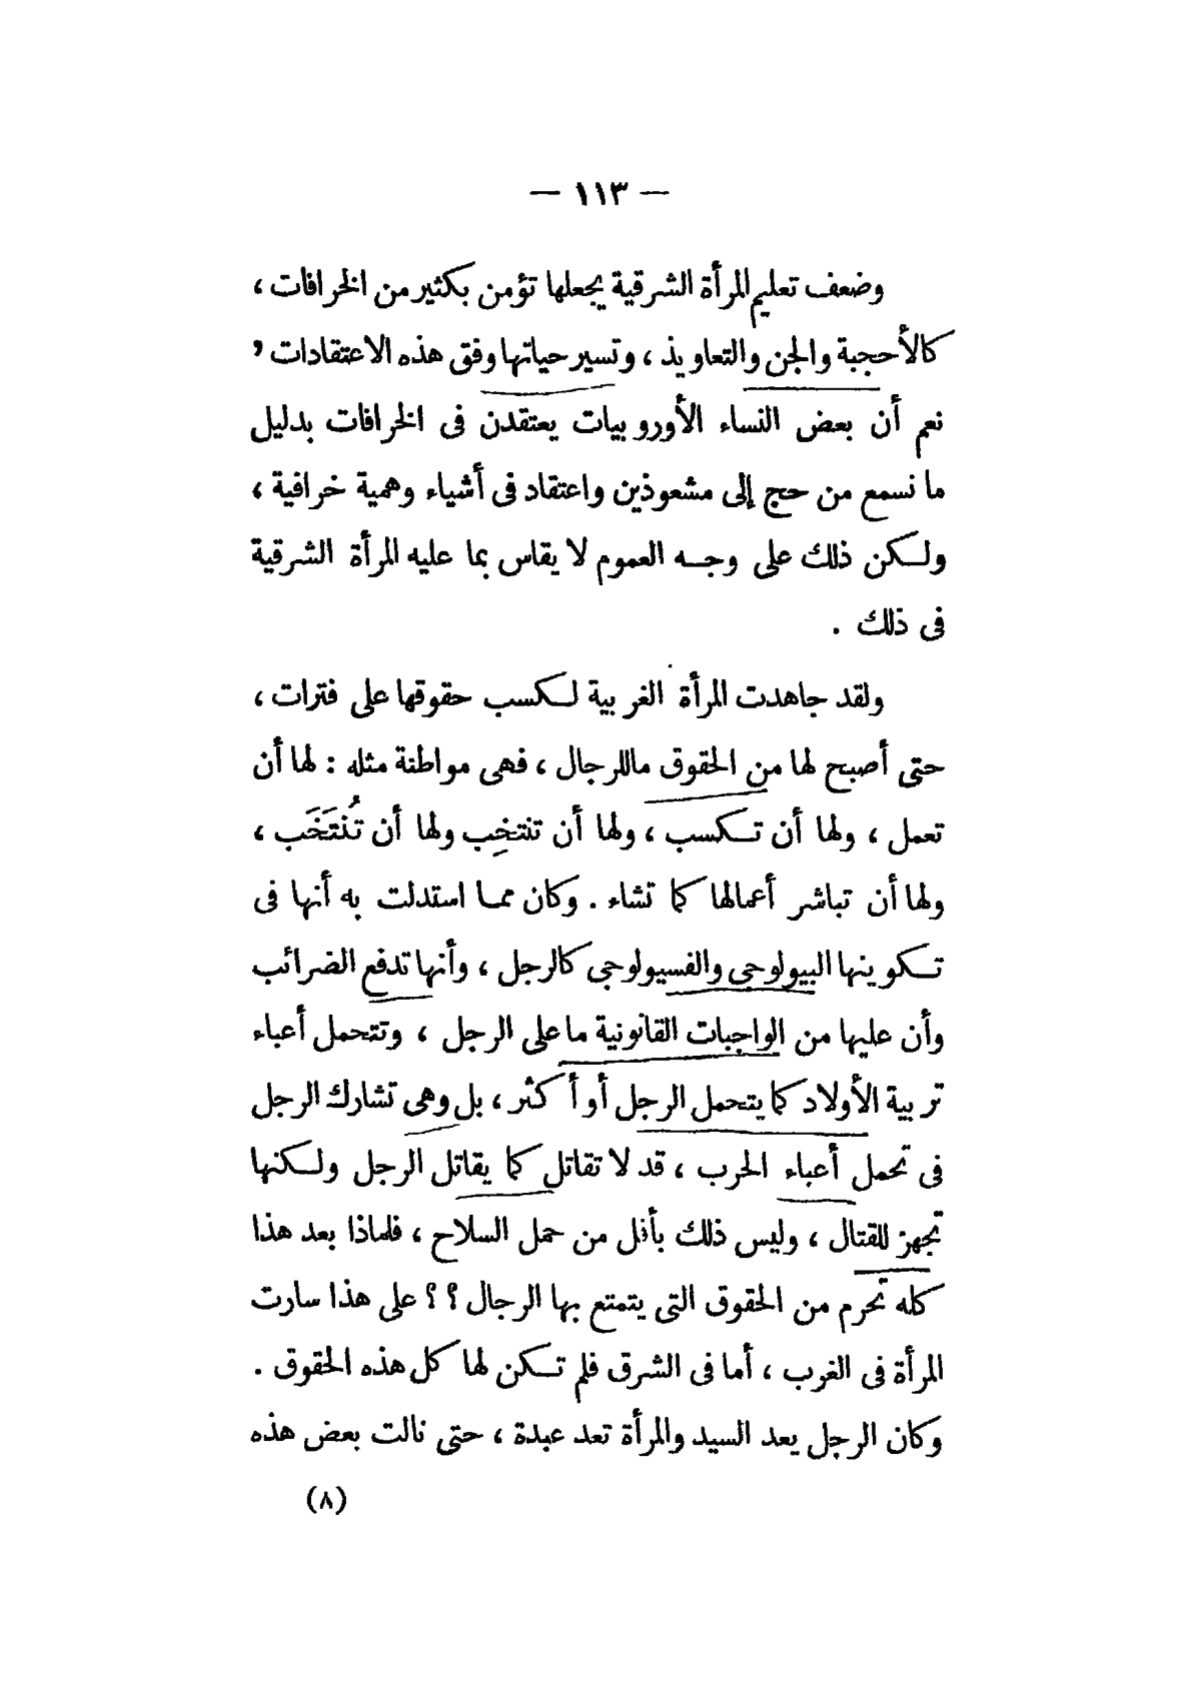 — ١١٣ —
وضعف تعليم المرأة الشرقية يجعلها تؤمن بكثير من الخرافات ،
كالأحجبة والجن والتعاويذ ، وتسير حياتها وفق هذه الاعتقادات ،
نعم أن بعض النساء الأوروبيات يعتقدن فى الخرافات بدليل
ما نسمع من حج إلى مشعوذين واعتقاد فى أشياء وهمية خرافية ،
ولكن ذلك على وجه العموم لا يقاس بما عليه المرأة الشرقية
فى ذلك .
ولقد جاهدت المرأة الغربية لكسب حقوقها على فترات ،
حتى أصبح لها من الحقوق ماللرجال ، فهى مواطنة مثله : لها أن
تعمل ، ولها أن تكسب ، ولها أن تنتخِب ولها أن تُنتَخَب ،
ولها أن تباشر أعمالها كما تشاء . وكان مما استدلت به أنها فى
تكوينها البيولوجى والفسيولوجى كالرجل ، وأنها تدفع الضرائب
وأن عليها من الواجبات القانونية ما على الرجل ، وتتحمل أعباء
تربية الأولاد كما يتحمل الرجل أو أكثر ، بل وهى تشارك الرجل
فى تحمل أعباء الحرب ، قد لا تقاتل كما يقاتل الرجل ولكنها
تجهز للقتال ، وليس ذلك بأقل من حمل السلاح ، فلماذا بعد هذا
كله تحرم من الحقوق التى يتمتع بها الرجال ؟ ؟ على هذا سارت
المرأة فى الغرب ، أما فى الشرق فلم تكن لها كل هذه الحقوق .
وكان الرجل يعد السيد والمرأة تعد عبدة ، حتى نالت بعض هذه
(٨)